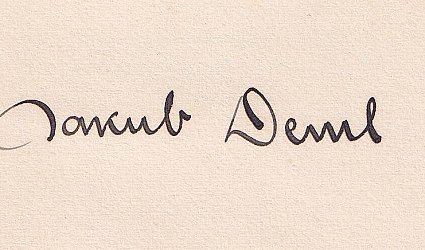 Jakub Deml